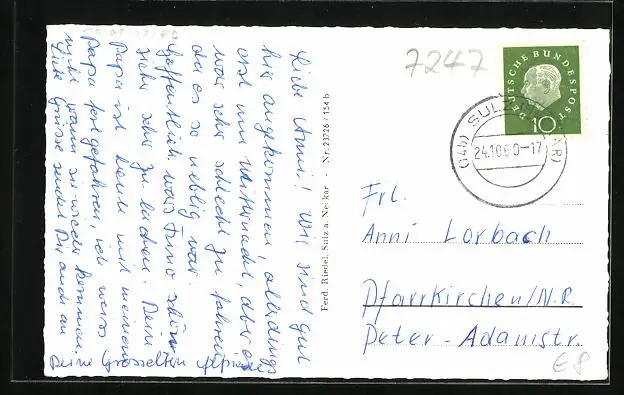 Liebe Anni! Wir sind gut
hier angekommen, allerdings
erst um Mitternacht, aber es
war sehr schlecht zu fahren
da es so neblig war.
Hoffentlich wars Kino schön
sehr zu lachen. Dein
Papa ist heute mit meinem
Papa fortgefahren, ich weiss
nicht wann sie wieder kommen.
Viele Grüsse sendet Dir auch an
Deine Grosseltern
Ferd. Riedel, Sulz a. Neckar - Nr. 23726 / 154 b
7247
DEUTSCHE BUNDESPOST
10
(14b) SULZ
24.10.60-17
Frl.
Anni Lorbach
Pfarrkirchen/N.B.
Peter-Adamstr.
€8